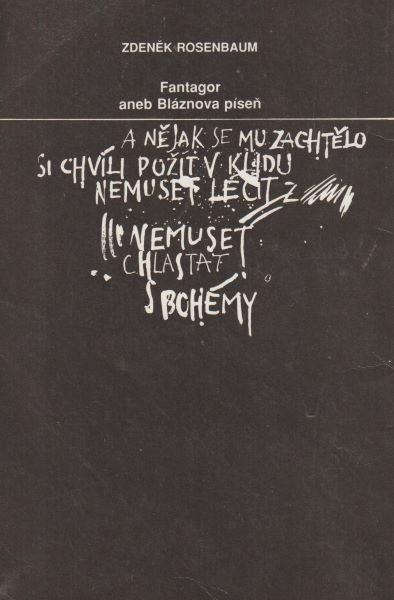 ZDENĚK ROSENBAUM
Fantagor
aneb Bláznova píseň
A NĚJAK SE MU ZACHTĚLO
SI CHVÍLI POŽÍT V KLIDU
NEMUSET LÉČIT Z
NEMUSET
CHLASTAT
S BOHÉMY